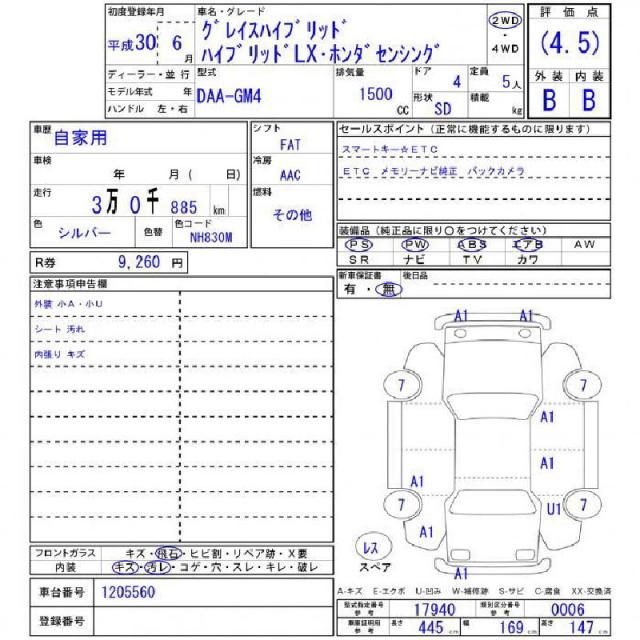 初度登録年月 車名・グレード 評 価 点
平成30 6月 グレイスハイブリッド 2WD
ハイブリッドLX・ホンダセンシング ・ 4WD (4.5)
ディーラー・並 行 型式 排気量 ドア 4 定員 5人 外 装 内 装
モデル年式 年 DAA-GM4 1500 CC 形状 SD 積載 kg B B
ハンドル 左・右
車歴 自家用 シフト FAT セールスポイント (正常に機能するものに限ります)
車検 年 月 ( 日) 冷房 AAC スマートキー☆ETC
ETC メモリーナビ純正 バックカメラ
走行 3万 0千 885 km 燃料 その他
色 シルバー 色替 色コード NH830M 装備品 (純正品に限り○をつけてください)
PS PW ABS エアB AW
R券 9,260 円 SR ナビ TV カワ
注意事項申告欄 新車保証書 有・無 後日品
外装 小A・小U
シート 汚れ
内張り キズ
A1 A1
7 7
A1
A1
A1
7 7
U1
A1
レス
スペア
A1
フロントガラス キズ・飛石・ヒビ割・リペア跡・X要
内装 キズ・汚レ・コゲ・穴・スレ・キレ・破レ
A-キズ E-エクボ U-凹み W-補修跡 S-サビ C-腐食 XX-交換済
車台番号 1205560 型式指定番号 参考 17940 類別区分番号 参考 0006
登録番号 車庫証明用 参考 長さ 445 cm 幅 169 cm 高さ 147 cm